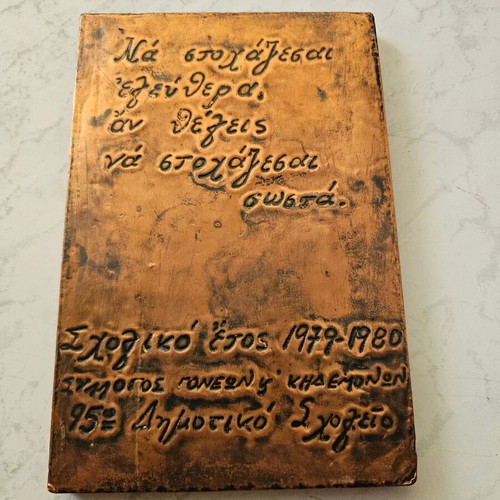 Νά στοχάζεσαι
ἐλεύθερα,
ἄν θέλεις
νά στοχάζεσαι
σωστά.
Σχολικό ἔτος 1979-1980
ΣΥΛΛΟΓΟΣ ΓΟΝΕΩΝ & ΚΗΔΕΜΟΝΩΝ
95ο Δημοτικό Σχολεῖο